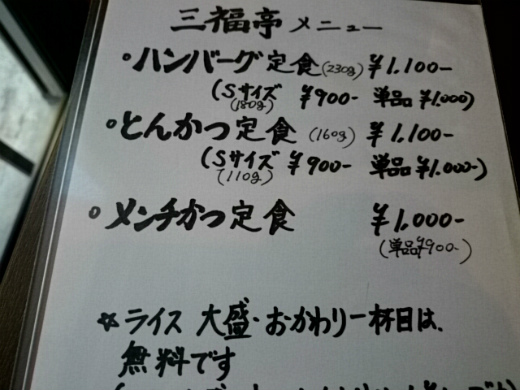 三福亭 メニュー
・ハンバーグ定食(230g) ¥1.100-
(Sサイズ ¥900- 単品 ¥1.000)
(180g)
・とんかつ定食(160g) ¥1.100-
(Sサイズ ¥900- 単品 ¥1.000-)
(110g)
・メンチかつ定食 ¥1.000-
(単品¥900-)
☆ライス 大盛・おかわり一杯目は、
無料です